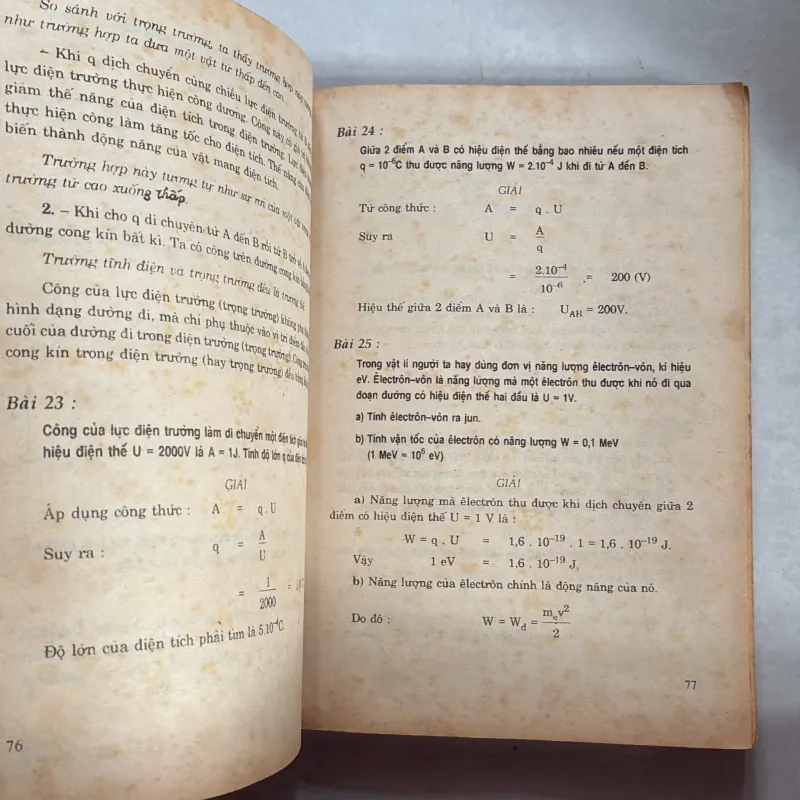 So sánh với trọng trường, ta thấy trường hợp này
như trường hợp ta đưa một vật từ thấp đến cao.
– Khi q dịch chuyển cùng chiều lực điện trường
lực điện trường thực hiện công dương. Công này có
giảm thế năng của điện tích trong điện trường. Lực điện
thực hiện công làm tăng tốc cho điện tích. Thế năng của
biến thành động năng của vật mang điện tích.
Trường hợp này tương tự như sự rơi của một vật
trường từ cao xuống thấp.
2. – Khi cho q di chuyển từ A đến B rồi từ B trở về A
đường cong kín bất kì. Ta có công trên đường cong kín
Trường tĩnh điện và trọng trường đều là trường thế
Công của lực điện trường (trọng trường) không phụ
hình dạng đường đi, mà chỉ phụ thuộc vào vị trí điểm đầu
cuối của đường đi trong điện trường (trọng trường). Công
cong kín trong điện trường (hay trọng trường) đều bằng
Bài 23 :
Công của lực điện trường làm di chuyển một điện tích giữa
hiệu điện thế U = 2000V là A = 1J. Tính độ lớn q của điện
GIẢI
Áp dụng công thức : A = q . U
Suy ra : q = A / U
= 1 / 2000 =
Độ lớn của điện tích phải tìm là 5.10⁻⁴C.
76
Bài 24 :
Giữa 2 điểm A và B có hiệu điện thế bằng bao nhiêu nếu một điện tích
q = 10⁻⁶C thu được năng lượng W = 2.10⁻⁴ J khi đi từ A đến B.
GIẢI
Từ công thức : A = q . U
Suy ra U = A / q
= 2.10⁻⁴ / 10⁻⁶ = 200 (V)
Hiệu thế giữa 2 điểm A và B là : U_AB = 200V.
Bài 25 :
Trong vật lí người ta hay dùng đơn vị năng lượng êlectrôn–vôn, kí hiệu
eV. Êlectrôn–vôn là năng lượng mà một êlectrôn thu được khi nó đi qua
đoạn đường có hiệu điện thế hai đầu là U = 1V.
a) Tính êlectrôn–vôn ra jun.
b) Tính vận tốc của êlectrôn có năng lượng W = 0,1 MeV
(1 MeV = 10⁶ eV)
GIẢI
a) Năng lượng mà êlectrôn thu được khi dịch chuyển giữa 2
điểm có hiệu điện thế U = 1 V là :
W = q . U = 1,6 . 10⁻¹⁹ . 1 = 1,6 . 10⁻¹⁹ J.
Vậy 1 eV = 1,6 . 10⁻¹⁹ J.
b) Năng lượng của êlectrôn chính là động năng của nó.
Do đó : W = W_d = m_e v² / 2
77